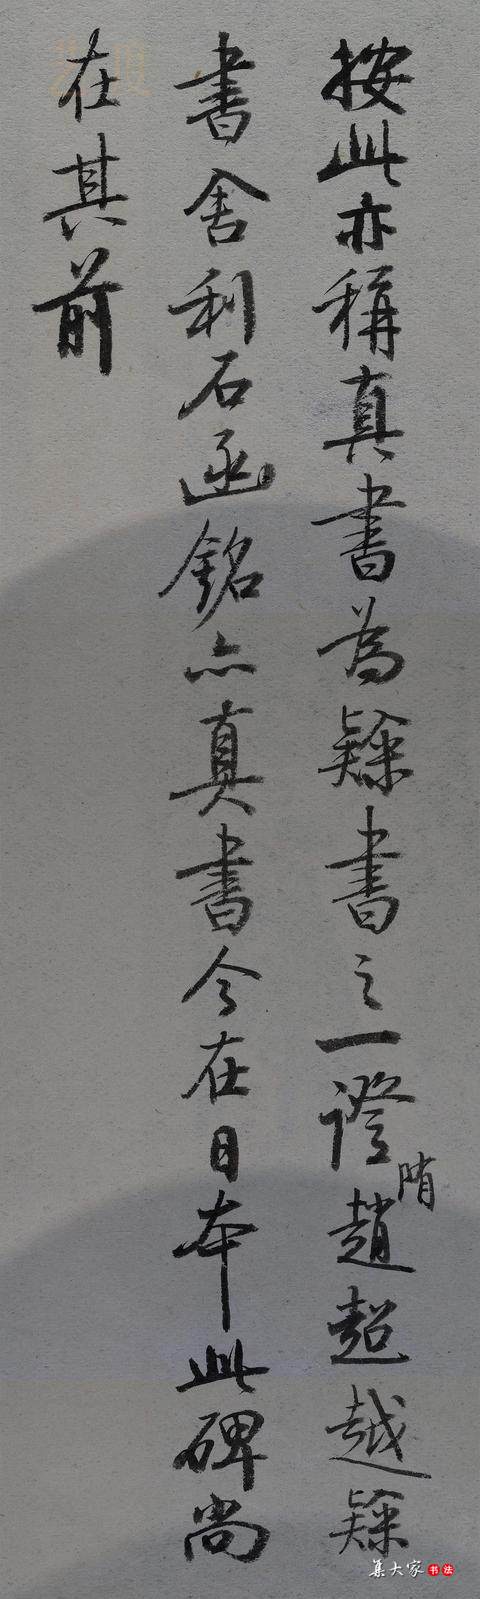 按此亦稱真書為隸書之一證隋趙超越隸
書舍利石函銘亦真書今在日本此碑尚
在其前
集大家 书法